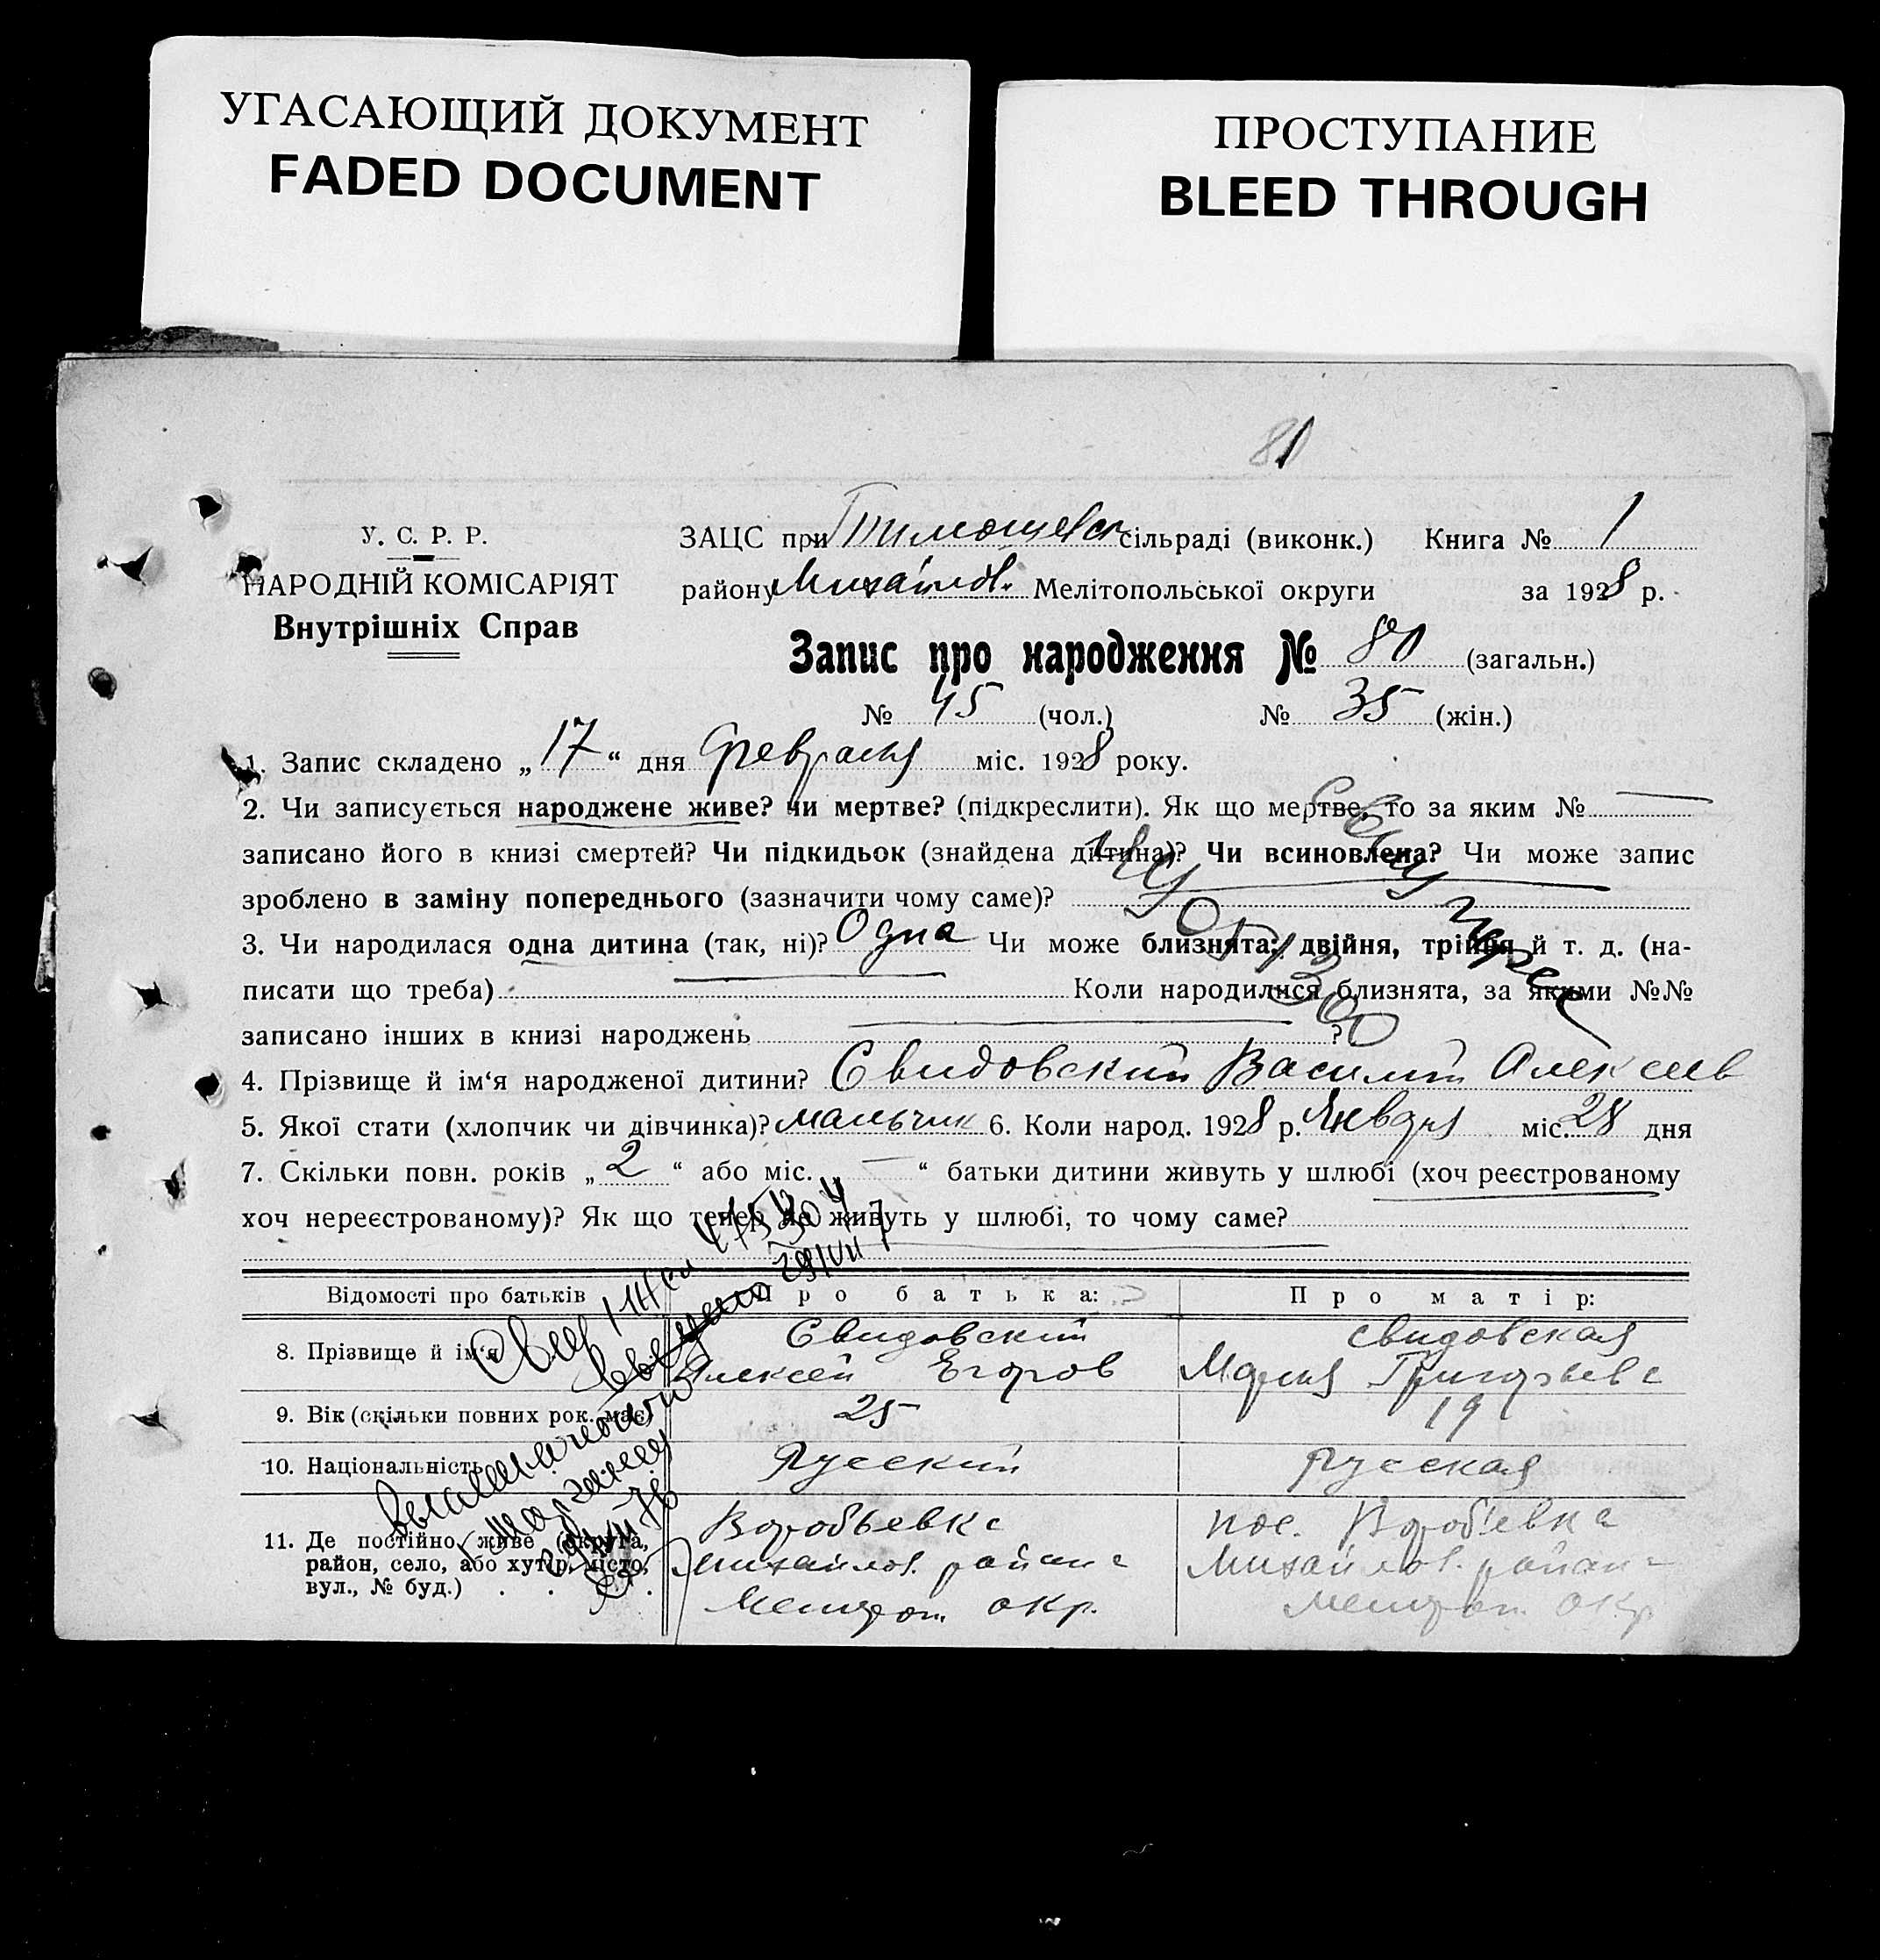 УГАСАЮЩИЙ ДОКУМЕНТ
FADED DOCUMENT
ПРОСТУПАНИЕ
BLEED THROUGH
У. С. Р. Р.
НАРОДНІЙ КОМІСАРІЯТ
Внутрішніх Справ
ЗАЦС при Тимошевс сільраді (виконк.) Книга № 1
району Михайлов. Мелітопольської округи за 1928 р.
Запис про народження № 80 (загальн.)
№ 45 (чол.) № 35 (жін.)
1. Запис складено „17“ дня февраля міс. 1928 року.
2. Чи записується народжене живе? чи мертве? (підкреслити). Як що мертве, то за яким №
записано його в книзі смертей? Чи підкидьок (знайдена дитина)? Чи всиновлена? Чи може запис
зроблено в заміну попереднього (зазначити чому саме)?
3. Чи народилася одна дитина (так, ні)? Одна Чи може близнята: двійня, трійня й т. д. (на-
писати що треба) Коли народилися близнята, за якими №№
записано інших в книзі народжень ?
4. Прізвище й ім‘я народженої дитини? Свидовский Василий Алексеев
5. Якої стати (хлопчик чи дівчинка)? мальчик 6. Коли народ. 1928 р. Января міс. 28 дня
7. Скільки повн. років „2“ або міс. — “ батьки дитини живуть у шлюбі (хоч реєстрованому
хоч нереєстрованому)? Як що тепер не живуть у шлюбі, то чому саме?
Відомості про батьків Про батька: Про матір:
8. Прізвище й ім‘я Свидовский Свидовская
Алексей Егоров Мария Григорьева
9. Вік (скільки повних рок. має) 25 19
10. Національність Русский Русская
11. Де постійно живе (округа, район, село, або хутір, місто, вул., № буд.) . . .
Воробьевка пос. Воробьевка
Михайлов. района Михайлов. района
Мелитоп. окр. Мелитоп. окр.